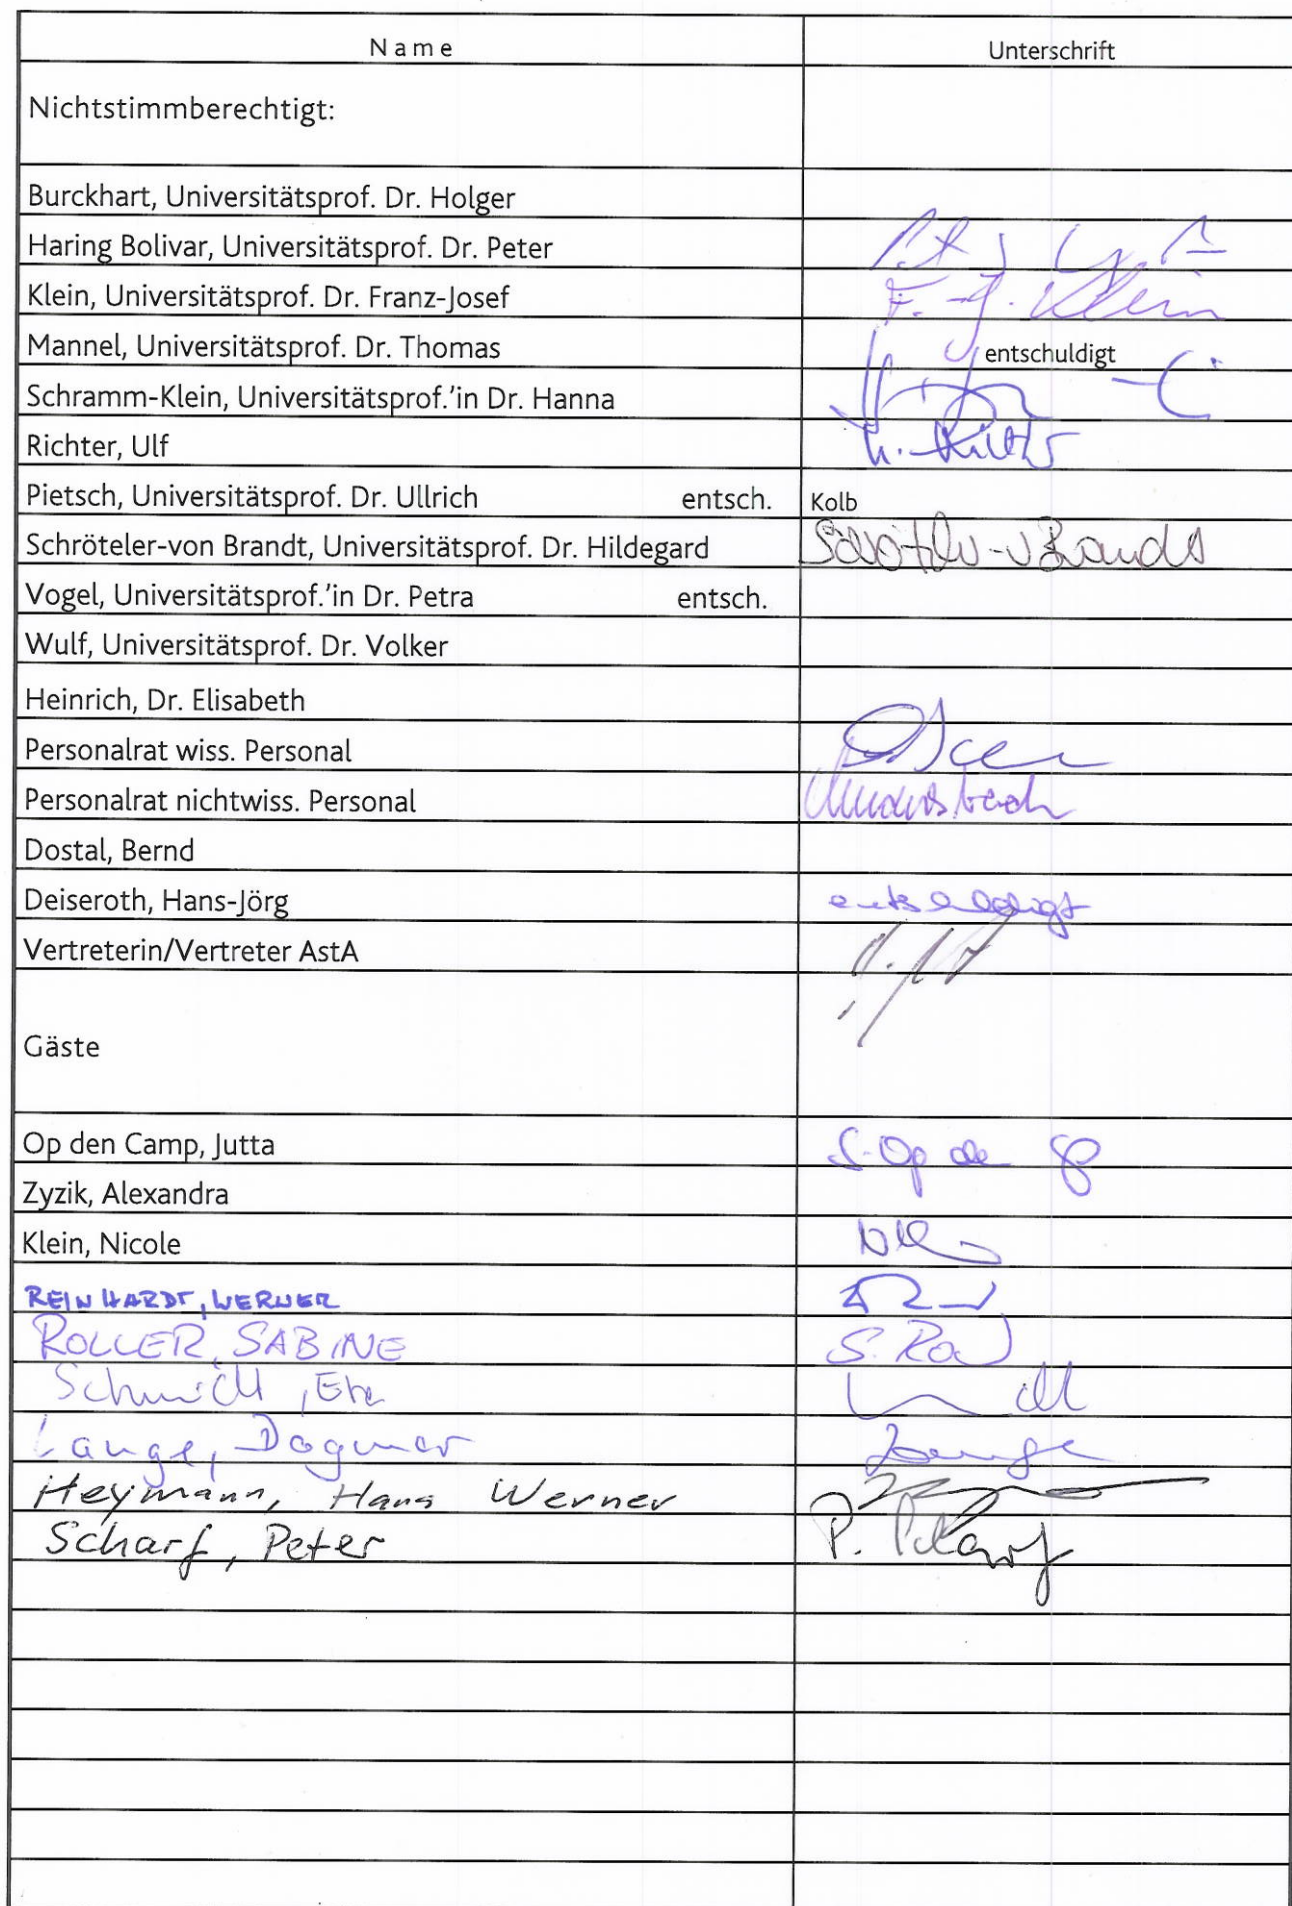 Name Unterschrift
Nichtstimmberechtigt:
Burckhart, Universitätsprof. Dr. Holger
Haring Bolivar, Universitätsprof. Dr. Peter
Klein, Universitätsprof. Dr. Franz-Josef F.-J. Klein
Mannel, Universitätsprof. Dr. Thomas entschuldigt
Schramm-Klein, Universitätsprof.'in Dr. Hanna
Richter, Ulf
Pietsch, Universitätsprof. Dr. Ullrich entsch. Kolb
Schröteler-von Brandt, Universitätsprof. Dr. Hildegard
Vogel, Universitätsprof.'in Dr. Petra entsch.
Wulf, Universitätsprof. Dr. Volker
Heinrich, Dr. Elisabeth
Personalrat wiss. Personal
Personalrat nichtwiss. Personal
Dostal, Bernd
Deiseroth, Hans-Jörg entschuldigt
Vertreterin/Vertreter AstA
Gäste
Op den Camp, Jutta
Zyzik, Alexandra
Klein, Nicole
REINHARDT, WERNER
ROLLER, SABINE
Schmidt,
Lange, Dagmar Lange
Heymann, Hans Werner
Scharf, Peter P. Scharf